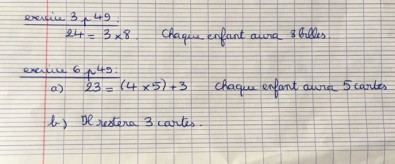 exercice 3 p 49:
24 = 3 x 8. Chaque enfant aura 8 billes.
exercice 6 p 49:
a) 23 = (4 x 5) + 3 chaque enfant aura 5 cartes
b) Il restera 3 cartes.